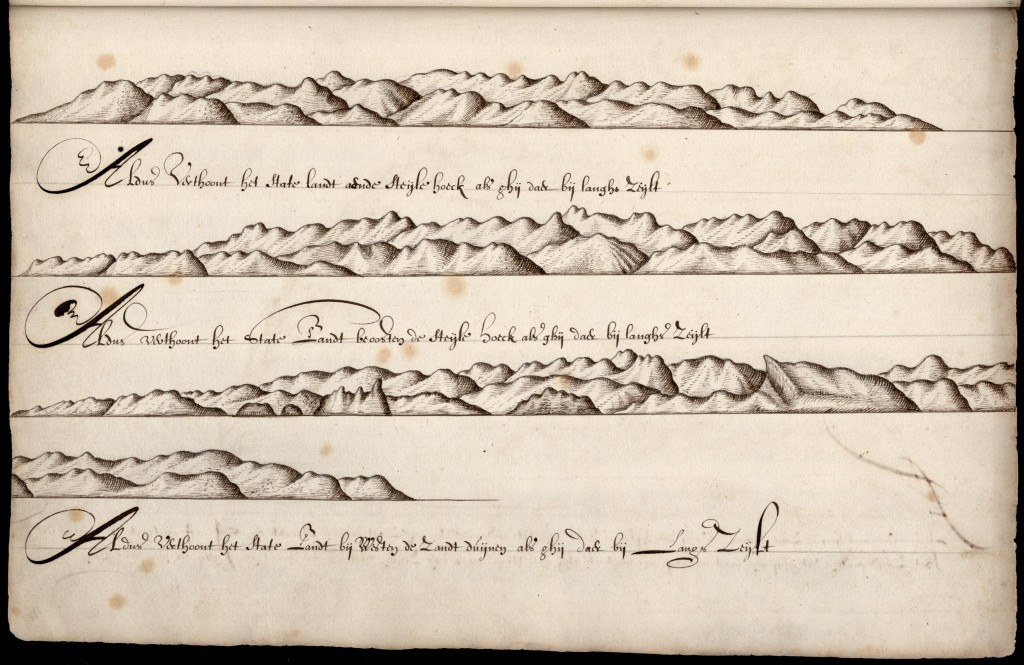 Aldus Verthoont het State landt aende Steijle hoeck als ghij daer bij langhs Zeijlt
Aldus Verthoont het State Landt beoosten de Steijle Hoeck als ghij daer bij langhs Zeijlt
Aldus Verthoont het State Landt bij Westen de Zandt duijnen als ghij daer bij Langs Zeijlt